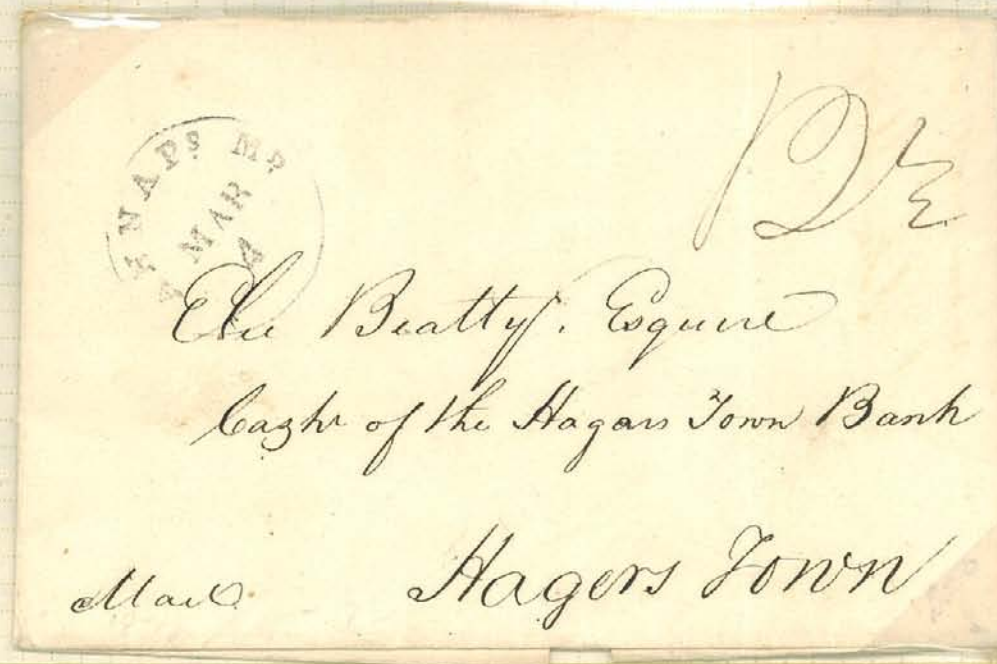 ANNAPS MD
MAR
4
12½
Elie Beatty. Esquire
Cashr of the Hagars Town Bank
Hagers Town
Mail